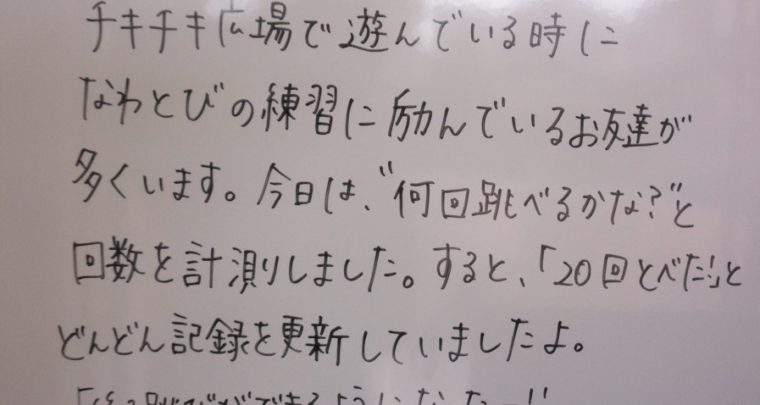 チキチキ広場で遊んでいる時に
なわとびの練習に励んでいるお友達が
多くいます。今日は、"何回跳べるかな?"と
回数を計測りしました。すると、「20回とべた!」と
どんどん記録を更新していましたよ。
跳びができるようになったー!!